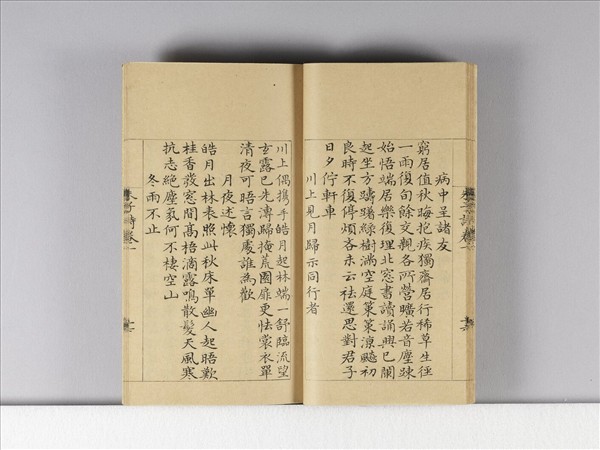 病中呈諸友
窮居值秋晦抱疾獨齋居行稀草生徑
一雨復旬餘交親各所營曠若音塵疎
始悟端居樂復理北窓書讀誦興已闌
起坐方躊躇綠樹滿空庭策策涼飈初
良時不復停煩吝未云祛還思對君子
日夕佇軒車
川上見月歸示同行者
川上偶携手皓月起林端一舒臨流望
玄露已先漙歸掩荒園扉更怯裳衣單
清夜可晤言獨處誰為歡
月夜述懷
皓月出林表照此秋床單幽人起晤歎
桂香發窓間高梧滴露鳴散髮天風寒
抗志絕塵氛何不棲空山
冬雨不止
朱子詩卷一